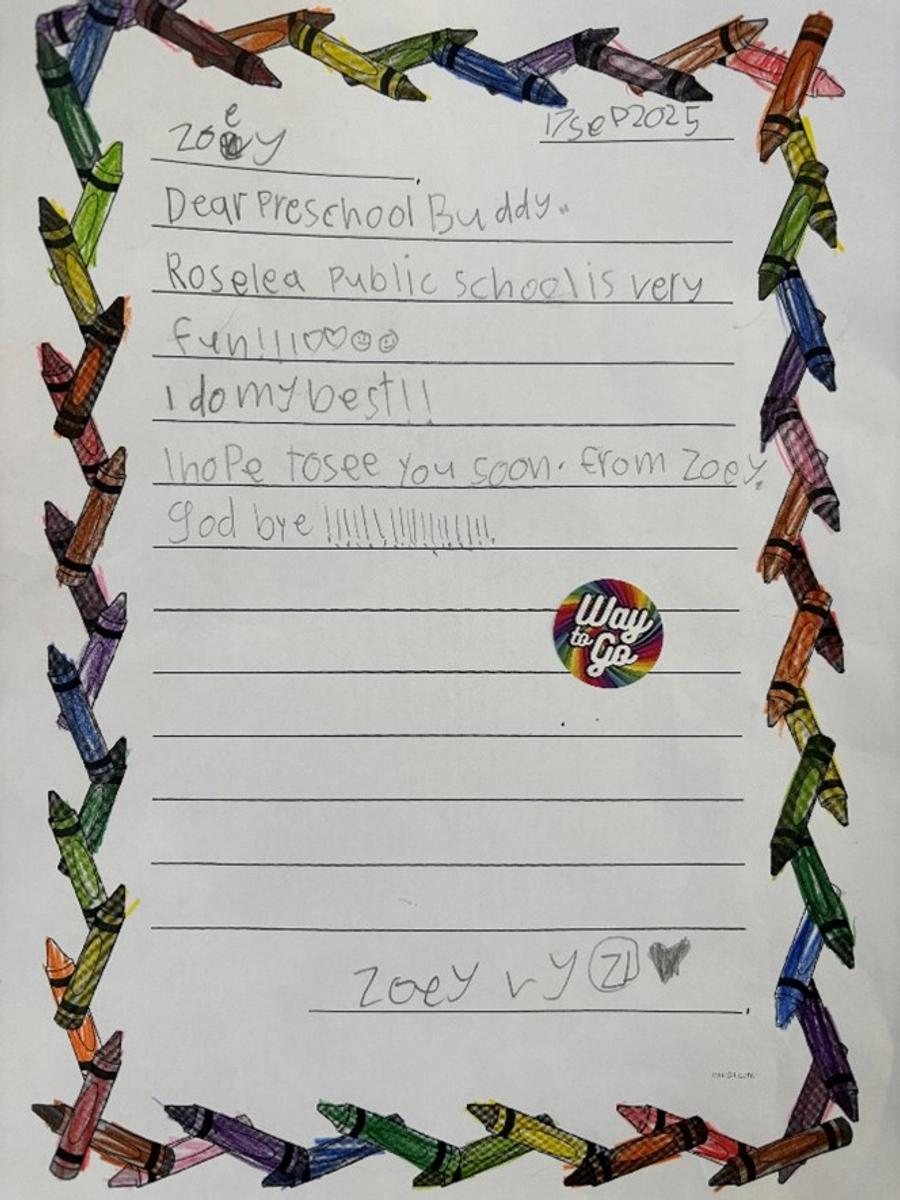 Zoey
17sep2025
Dear Preschool Buddy..
Roselea public school is very
fun!!!!
I do my best!!
I hope to see you soon. from Zoey.
god bye !!!!!!!!!!!!!!!!!!
Way
to
Go
Zoey